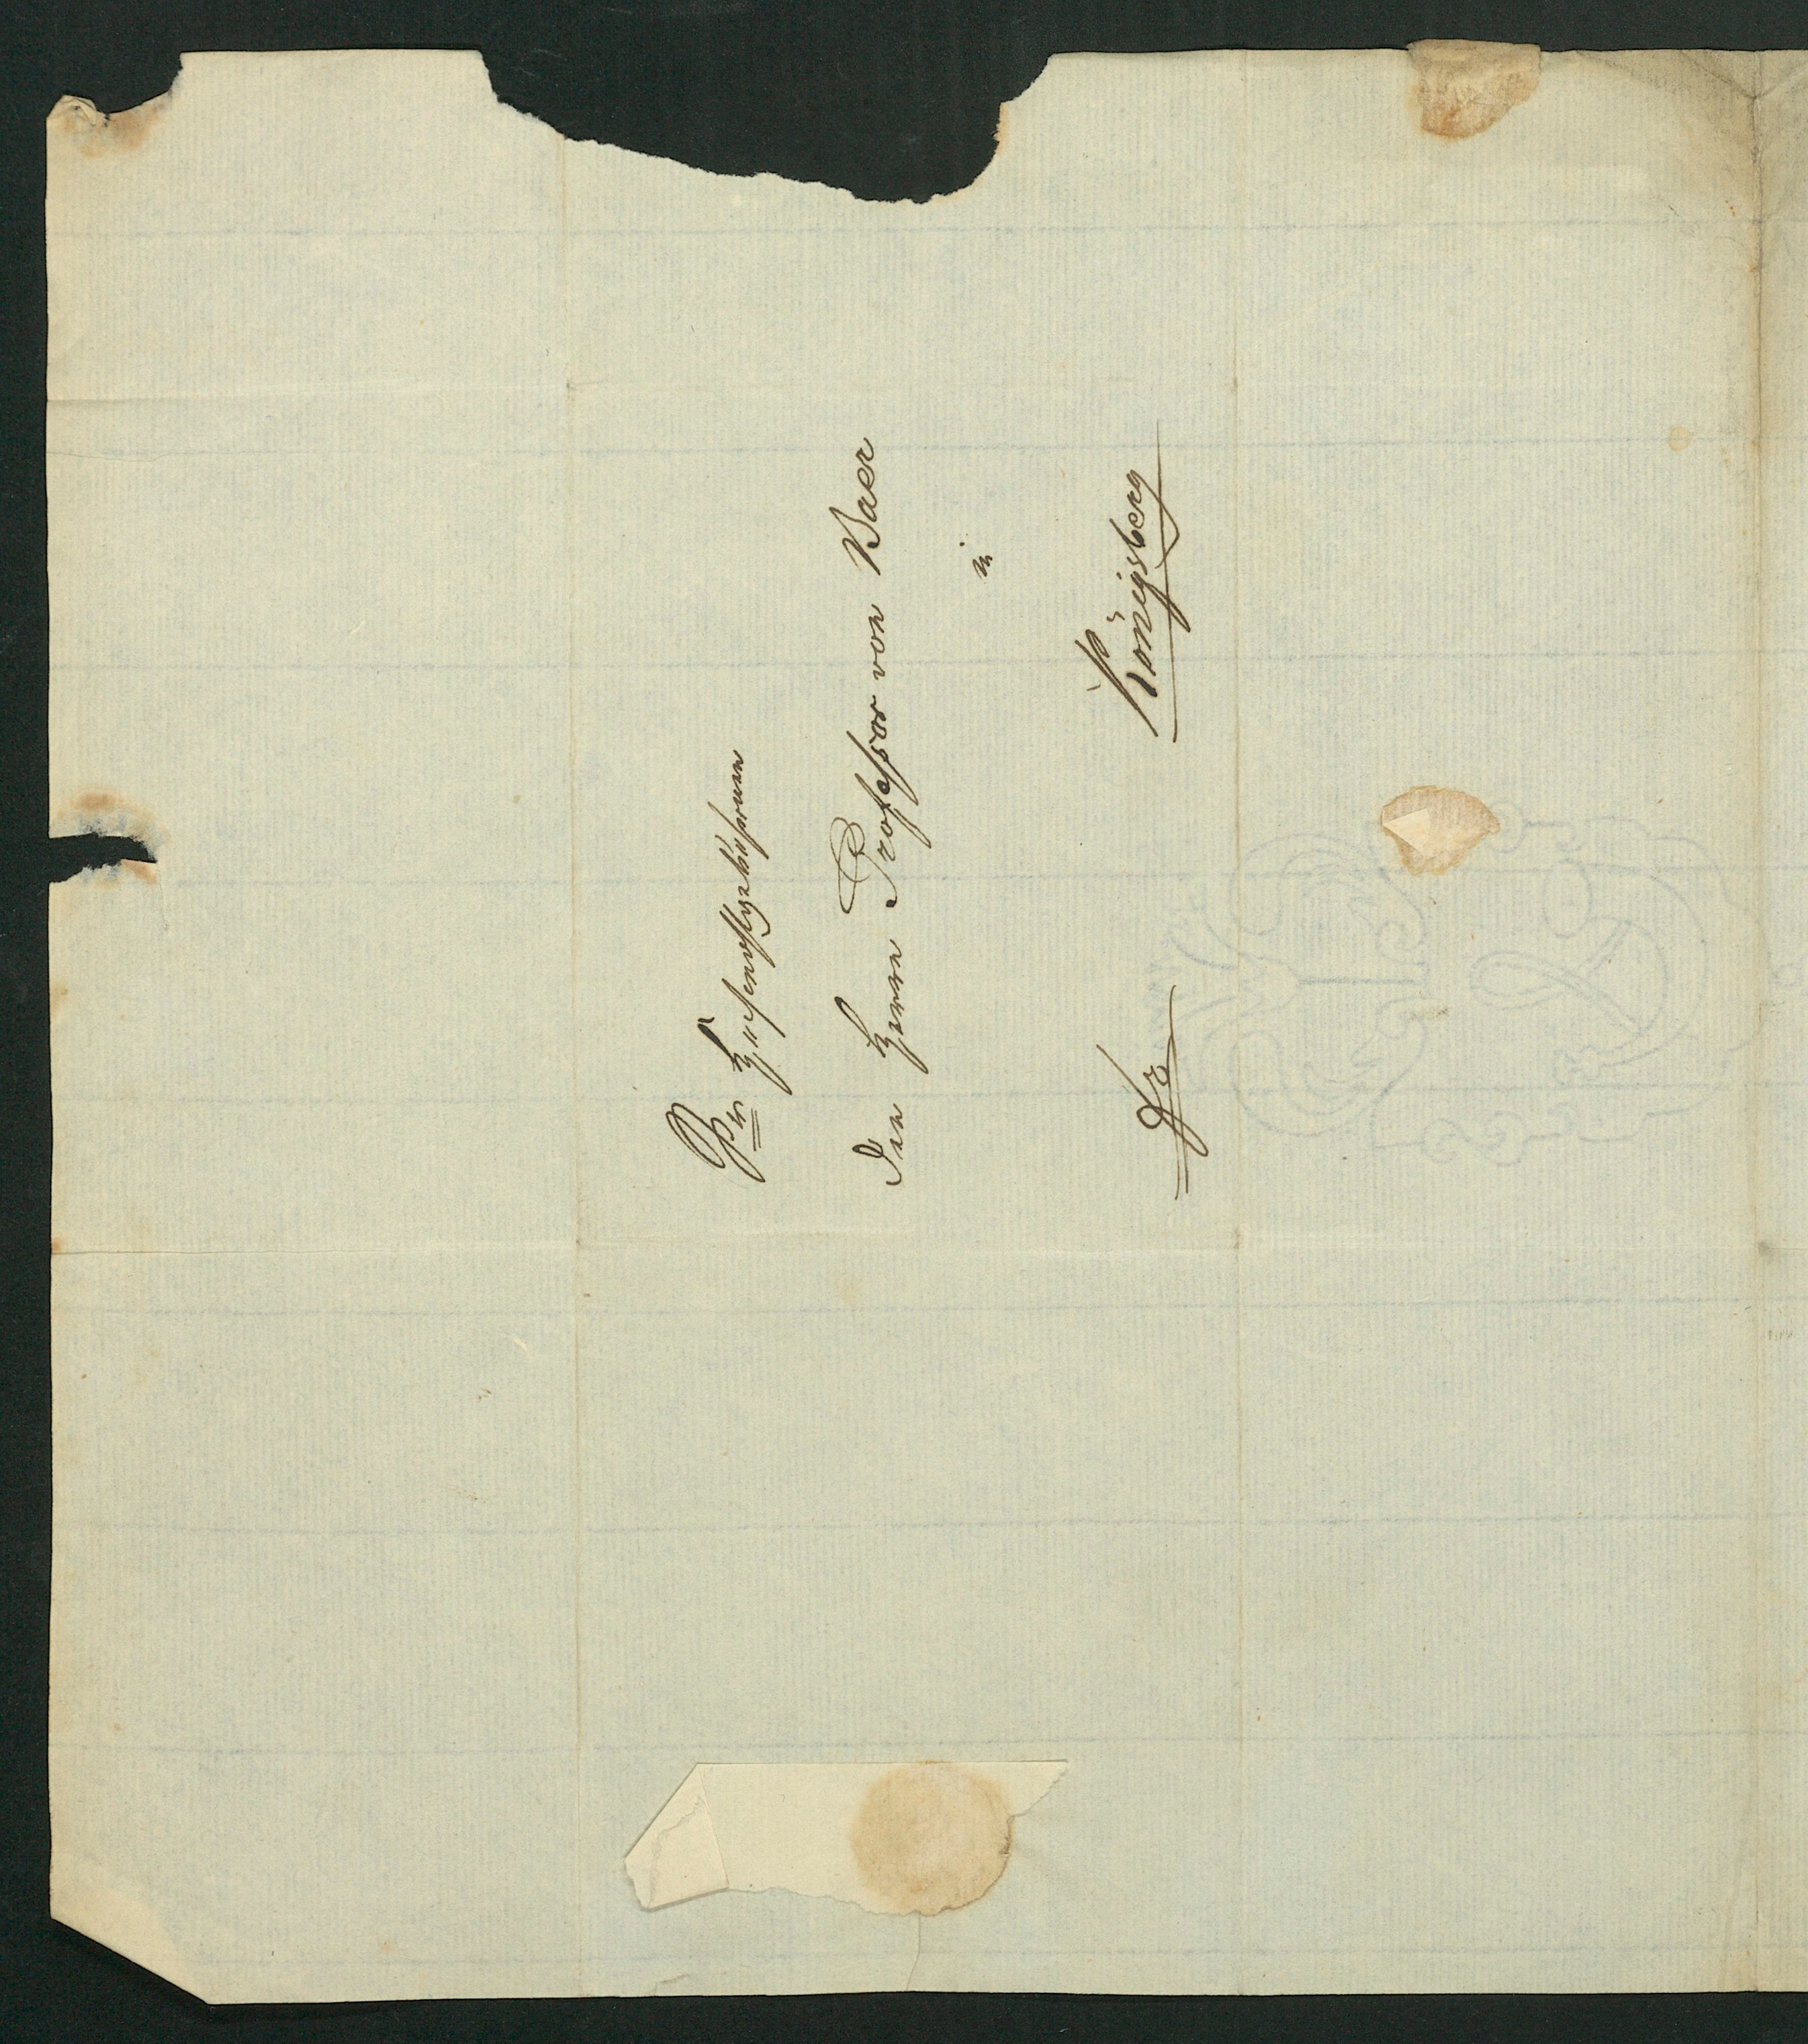 Sr Hochwohlgebohrnen
den Herrn Professor von Baer
in
Königsberg
fr